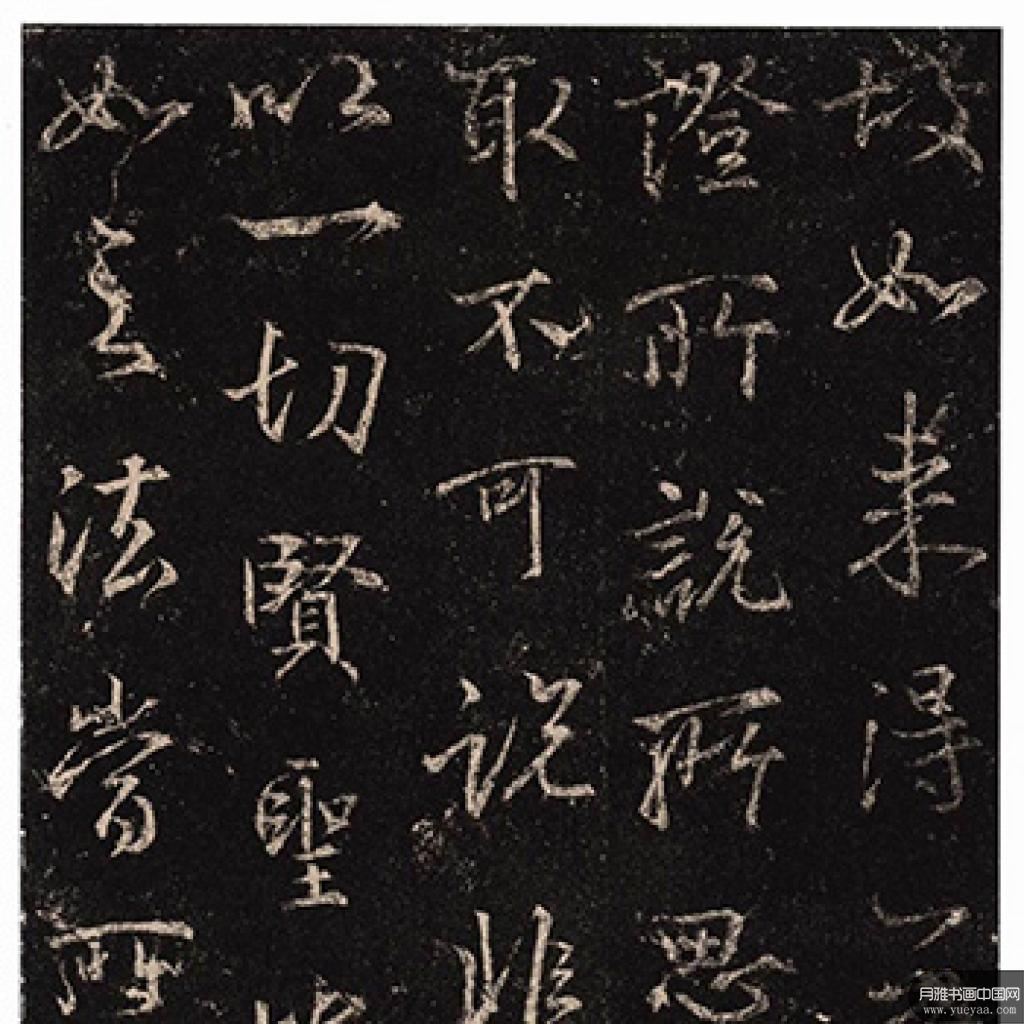 故如来得
證所說所思
取不可說非
以一切賢聖
如法所
月雅书画中国网
www.yueyaa.com